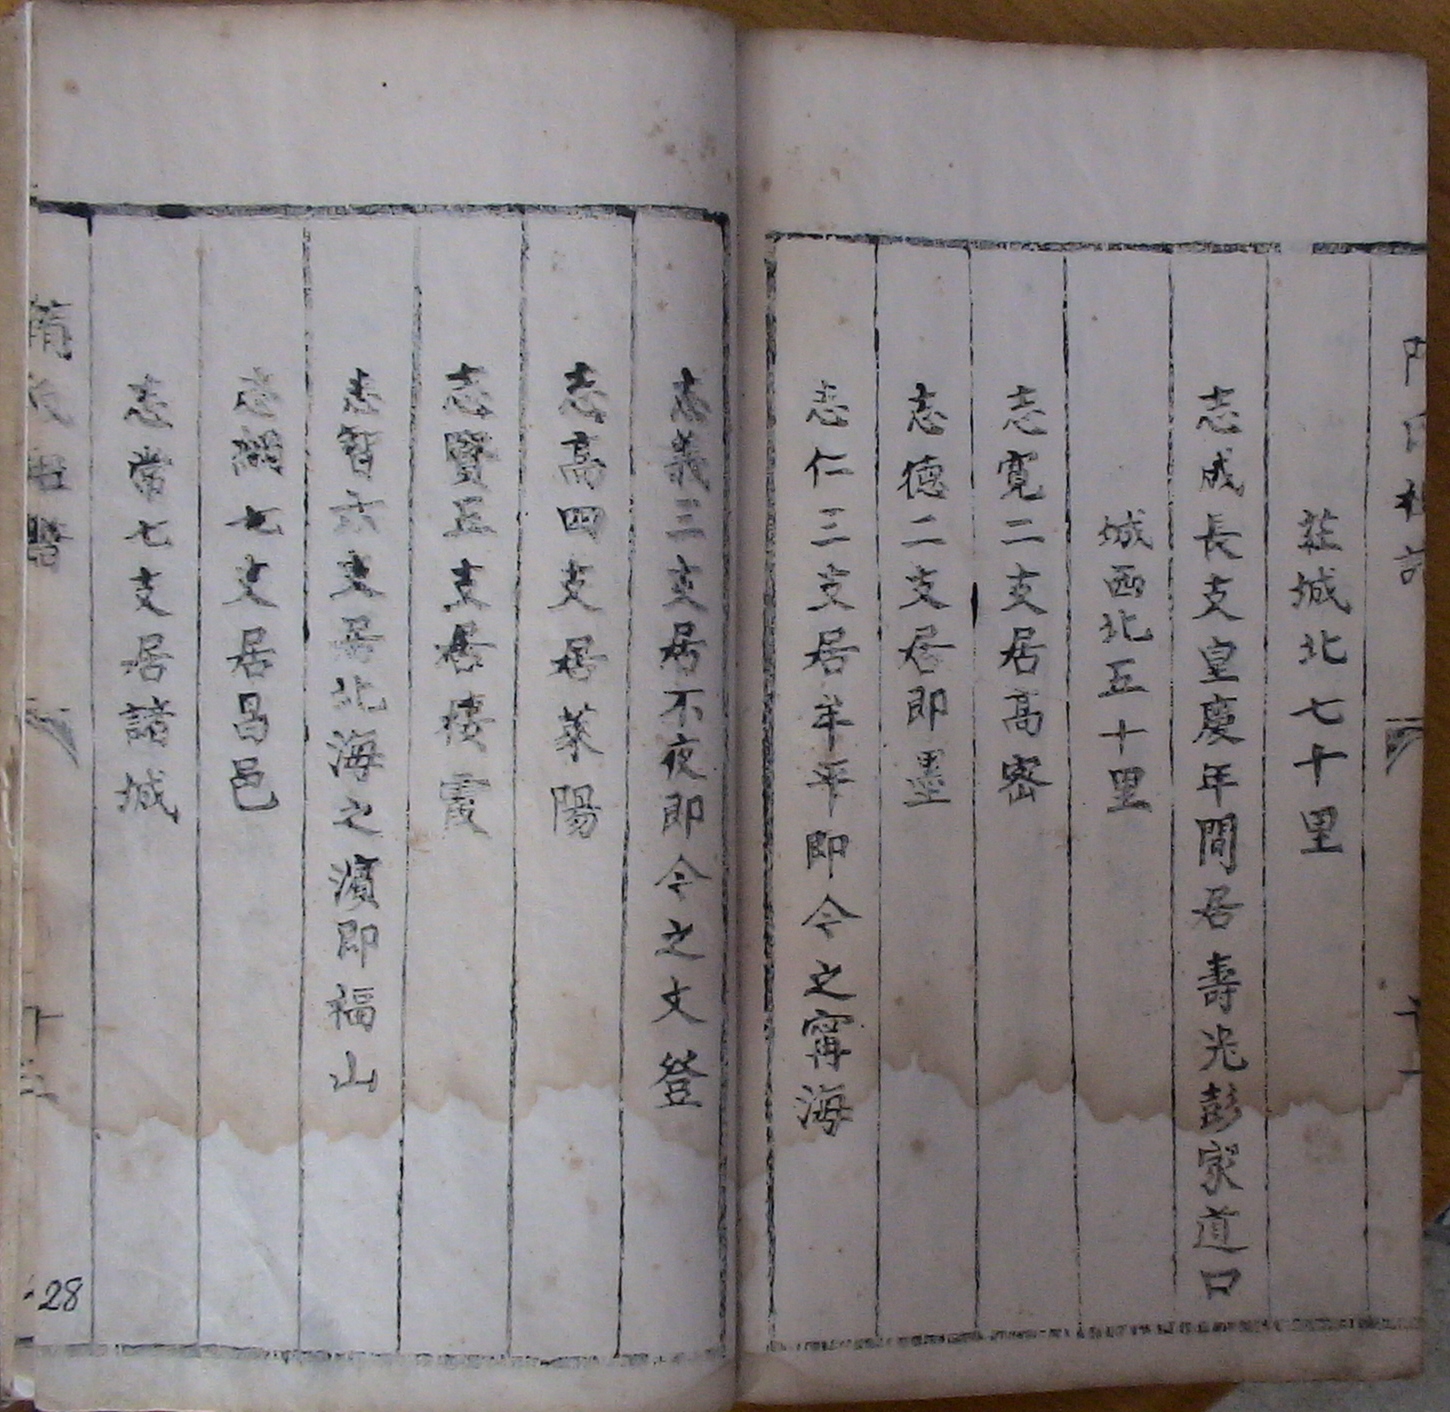 莊城北七十里
志成長支皇慶年間居壽光彭家道口
城西北五十里
志寬二支居高密
志德二支居即墨
志仁三支居牟平即今之甯海
志義三支居不夜即今之文登
志高四支居萊陽
志賢五支居棲霞
志智六支居北海之濱即福山
志 七支居昌邑
志常七支居諸城
隋氏
28